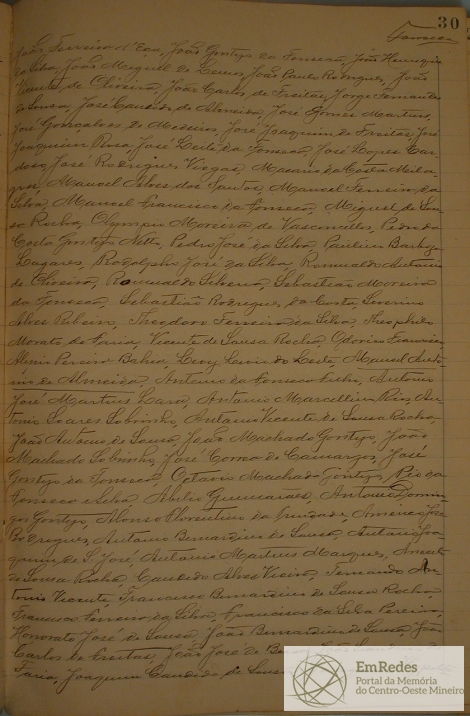 30
Fonseca
João Ferreira d'Eça, João Gontijo da Fonseca, João Henrique
da Silva, João Miguel de Deus, João Paulo Rodrigues, João
Vicente de Oliveira, João Carlos de Freitas, Jorge Fernandes
de Sousa, José Candido de Almeida, José Gomes Martins,
José Gonçalves de Medeiros, José Joaquim de Freitas, José
Joaquim Rosa, José Leite da Fonseca, José Lopes Car-
doso, José Rodrigues Viegas, Macario da Costa Mila-
gres, Manoel Alves dos Santos, Manoel Ferreira da
Silva, Manoel Francisco da Fonseca, Miguel de Sou-
sa Rocha, Olympio Moreira de Vasconcellos, Pedro da
Costa Gontijo Netto, Pedro José da Silva, Paulino Barbosa
Lagares, Rodolpho José da Silva, Romualdo Antonio
de Oliveira, Romualdo Silveira, Sebastião Moreira
da Fonseca, Sebastião Rodrigues da Costa, Severino
Alves Ribeiro, Theodoro Ferreira da Silva, Theophilo
Morato de Faria, Vicente de Sousa Rocha, Odorico Francisco
Pereira Bahia, Levy Leite, Manoel Anto-
nio de Almeida, Antonio da Fonseca, Antonio
José Martins Lara, Antonio Marcellino Reis, An-
tonio Soares Sobrinho, Antonio Vicente de Sousa Rocha,
João Antonio de Sousa, João Machado Gontijo, João
Machado Sobrinho, José Correa de Camargos, José
Gontijo da Fonseca, Octavio Machado Gontijo, Pio da
Fonseca e Silva, Abilio Guimaraes, Antonio Domin-
gos Gontijo, Affonso Florentino da Trindade, Americo José
Rodrigues, Antonio Bernardino de Sousa, Antonio Joa-
quim de S. José, Antonio Martins Marques,
de Sousa Rocha, Candido Alves Vieira, Fernando An-
tonio Vicente, Francisco Bernardino de Sousa Rocha,
Francisco Ferreira da Silva, Francisco da Silva Pereira,
Honorato José de Sousa, João Bernardino de Sousa, João
Carlos de Freitas, João José de
Faria, Joaquim Candido de Sousa
EmRedes
Portal da Memória
do Centro-Oeste Mineiro